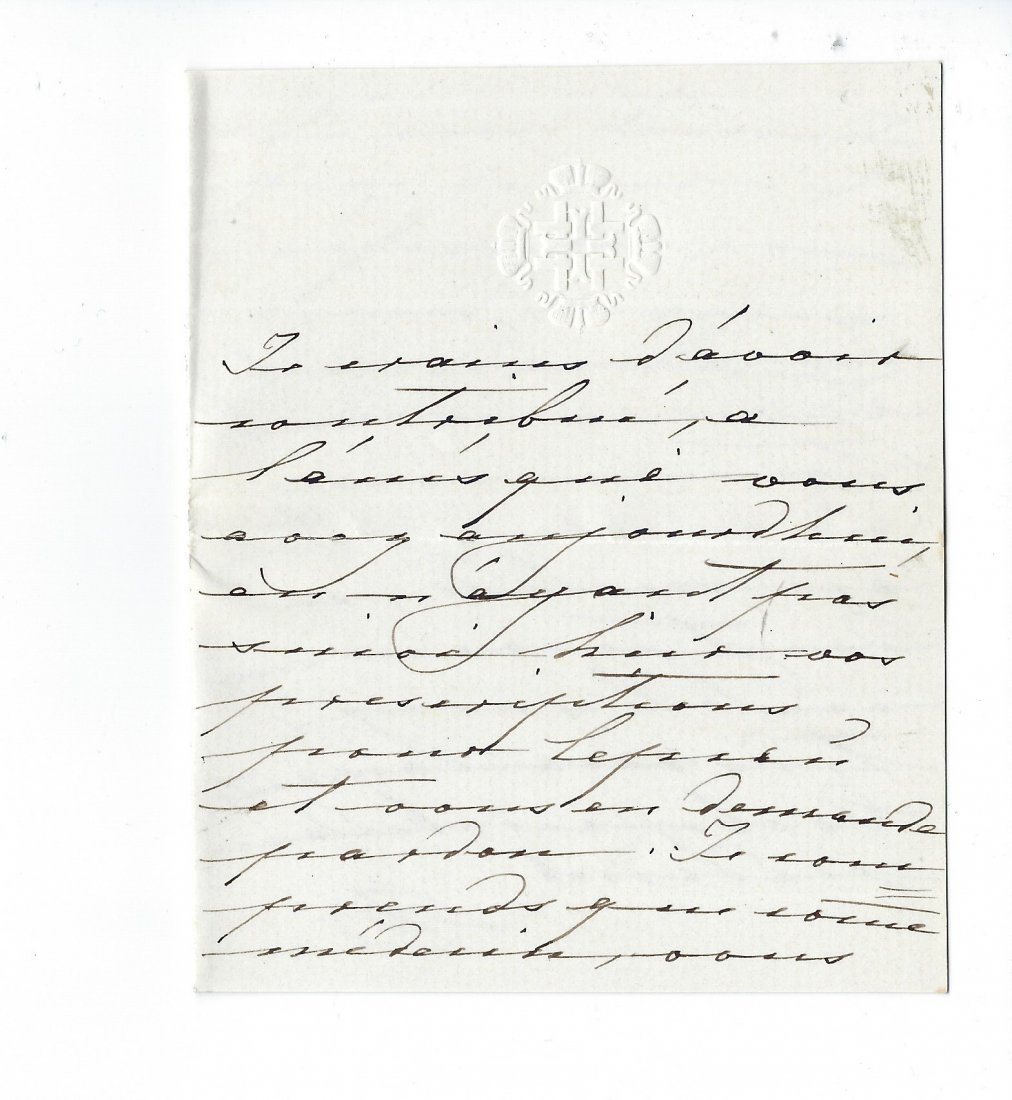 Je crains d'ávoir
contribué, a
qué vous
avez aujourdhui,
èn n'áyant pas
suivi hier vos
prescriptions
pour
et vous en demande
pardon. Je com
prends que com̄e
médecin, vous